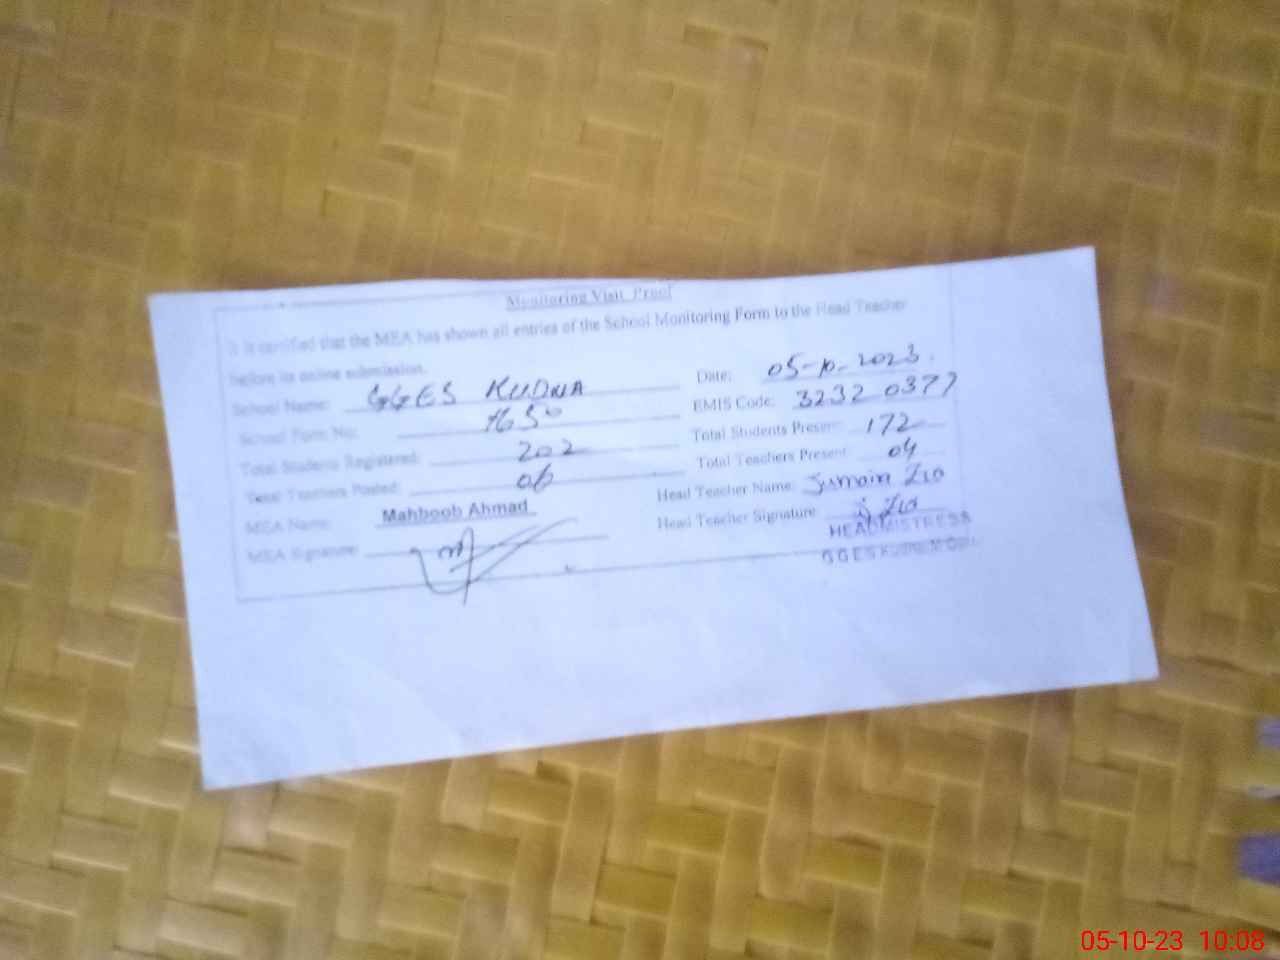 Monitoring Visit Proof
It is certified that the MEA has shown all entries of the School Monitoring Form to the Head Teacher
before its online submission.
Date: 05-10-2023.
School Name: GGES KUDNA
EMIS Code: 3232 0377
School Form No: 1650
Total Students Present: 172
Total Students Registered: 202
Total Teachers Present: 04
Total Teachers Posted: 06
Head Teacher Name: Sumaira Zia
MEA Name: Mahboob Ahmad
Head Teacher Signature:
MEA Signature:
HEADMISTRESS
GGES
05-10-23 10:08